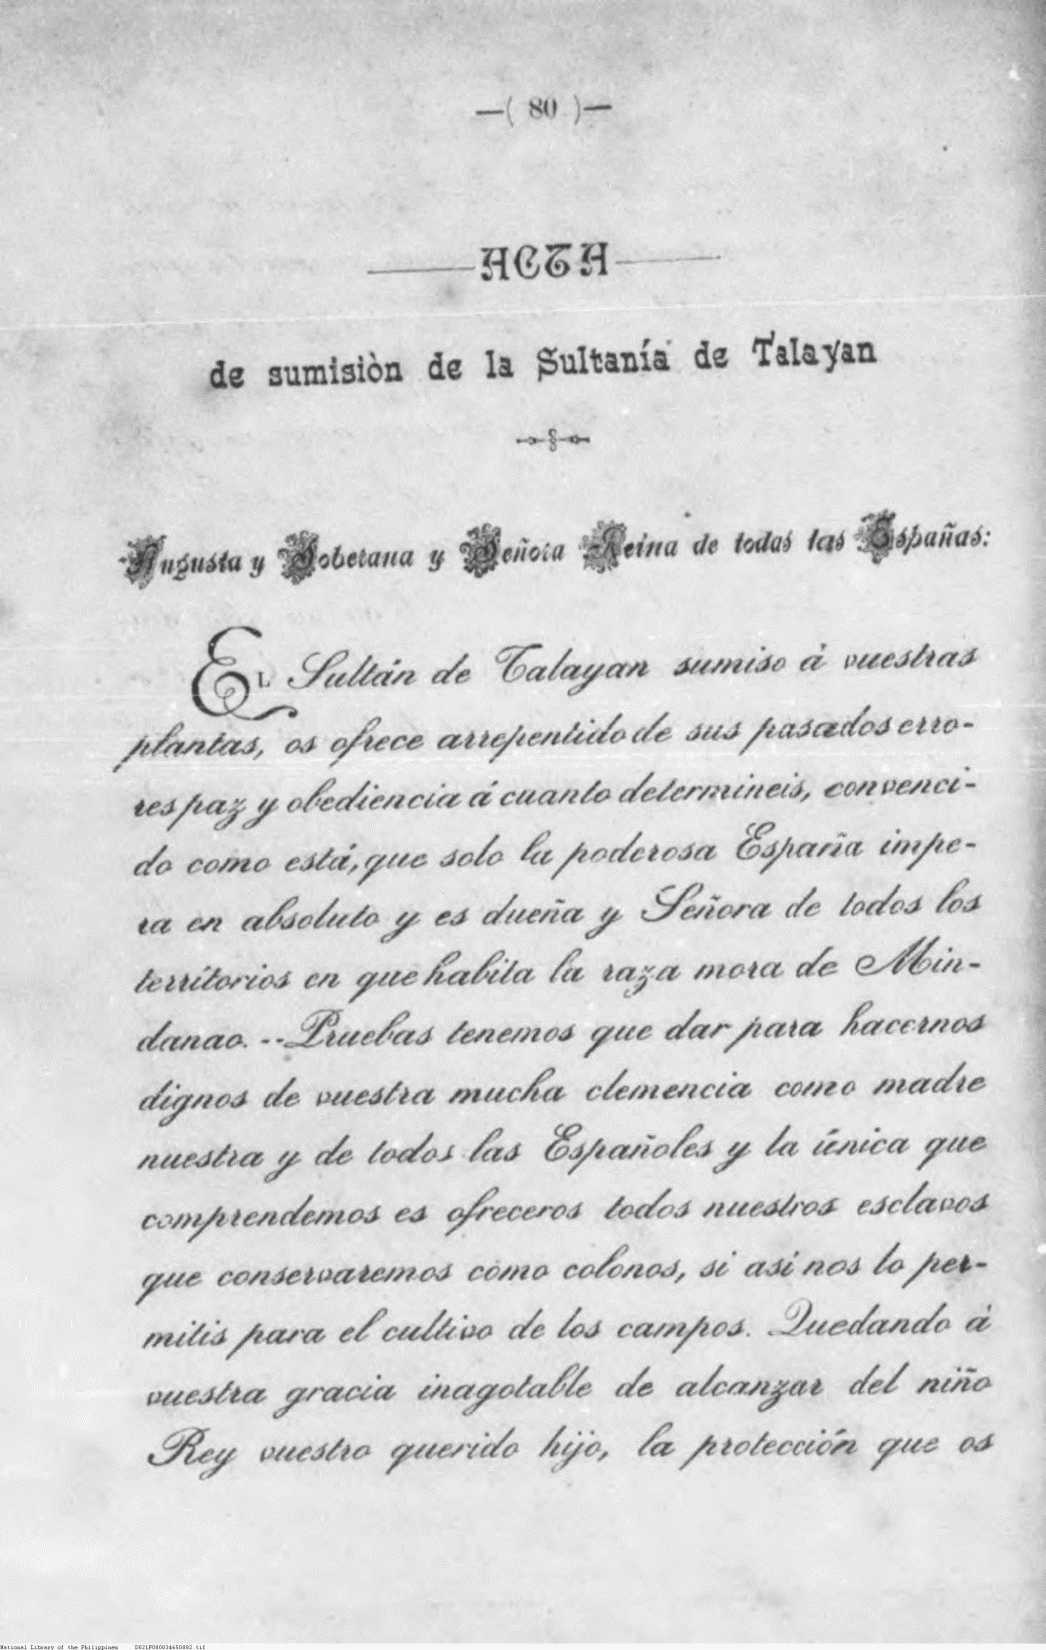 —( 80 )—
ACTA
de sumisiòn de la Sultanía de Talayan
Augusta y Soberana y Señora Reina de todas las Españas:
El Sultán de Talayan sumiso á vuestras
plantas, os ofrece arrepentido de sus pasados erro-
res paz y obediencia á cuanto determineis, convenci-
do como está, que solo la poderosa España impe-
ra en absoluto y es dueña y Señora de todos los
territorios en que habita la raza mora de Min-
danao. -- Pruebas tenemos que dar para hacernos
dignos de vuestra mucha clemencia como madre
nuestra y de todos las Españoles y la única que
comprendemos es ofreceros todos nuestros esclavos
que conservaremos como colonos, si asi nos lo per-
mitis para el cultivo de los campos. Quedando á
vuestra gracia inagotable de alcanzar del niño
Rey vuestro querido hijo, la protección que os
National Library of the Philippines D021F0X0034650092.tif